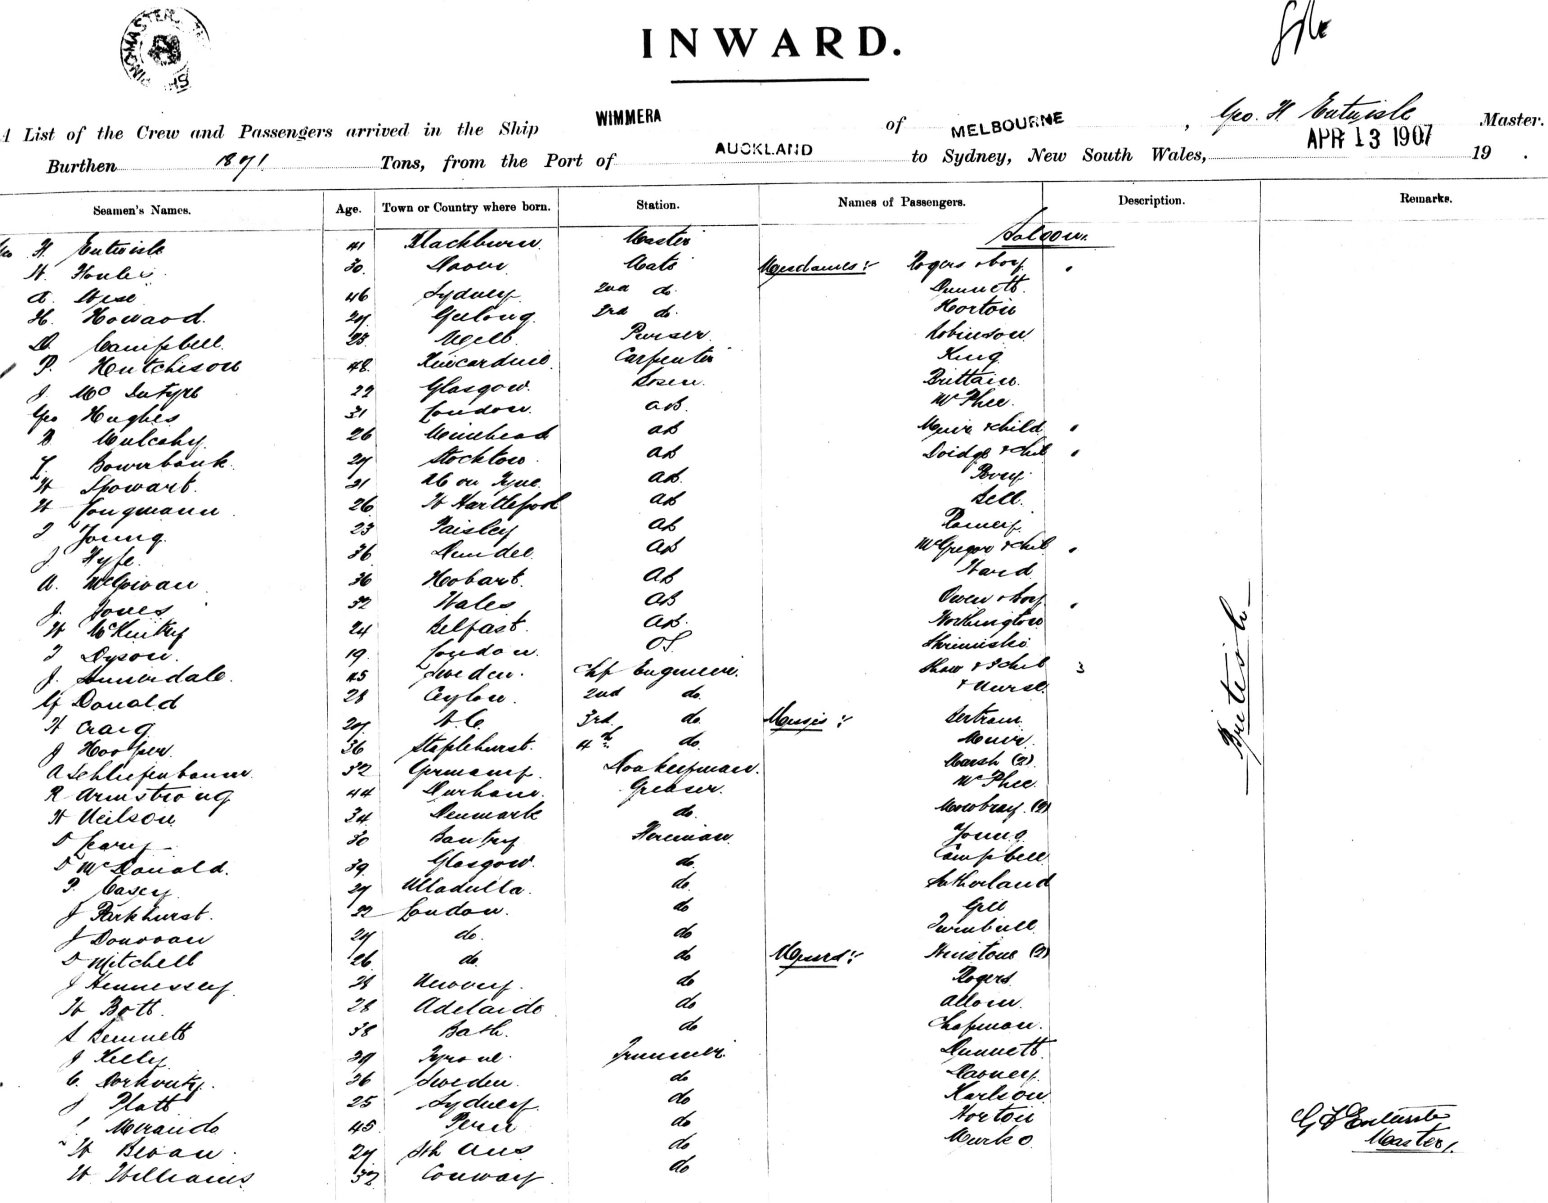 INWARD.
A List of the Crew and Passengers arrived in the Ship WIMMERA of MELBOURNE, Geo. H Entwisle Master.
Burthen 1871 Tons, from the Port of AUCKLAND to Sydney, New South Wales, APR 13 1907 19 .
Seamen's Names. Age. Town or Country where born. Station. Names of Passengers. Description. Remarks.
Saloon.
Geo H. Entwisle 41 Blackburn Master
30 Dover Mate Mesdames :- Rogers & boy
A. Wise 46 Sydney 2nd do. Dunnett
H. Howard. 27 Geelong 3rd do. Horton
D. Campbell 23 Melb Purser Robinson
P. Hutcheson 48 Kincardine Carpenter King
J. McIntyre 22 Glasgow. Bosun. Brittain.
Geo Hughes 31 London. AB. McPhee.
B Mulcahy 26 AB Muir & child
Bowerbank. 27 Stockton AB & chil
W Spowart. 21 on Tyne AB.
W Jongmann 26 W Hartlepool AB Bell.
T Young 23 Paisley AB
J Fyfe. 36 Dundee AB McGregor & chil
A. McGowan 36 Hobart. AB Ward
J. Jones 32 Wales AB Owen & boy
W McKinty 24 Belfast. AB. Worthington
T Dyson. 19 London. OS
J. Sunnerdale. 45 Sweden. Chf Engineer. Shaw & 3 chil 3
G Donald 28 Ceylon. 2nd do. & nurse
W Craig 27 3rd do. Misses :- Bertram
J Hooper. 36 Staplehurst. 4th do. Muir.
A Schliefenbaum 32 Germany. Donkeyman. Marsh (2).
R Armstrong 44 Durham. Greaser. McPhee.
W Neilson 34 Denmark do. Mowbray (2)
D Leary 30 Bantry Fireman Young
D McDonald. 39 Glasgow. do. Campbell
P. Casey 27 Ulladulla. do. Sutherland
J Parkhurst. 32 London. do Gill
J Donovan 27 do. do Turnbull
D Mitchell 26 do. do Messrs :- Winstone (2)
J Hennessey 28 Newory. do Rogers
W Bott. 28 Adelaide do
S Bennett 38 Bath. do Chapman.
J Kelly 39 Tyrone. Trimmer. Dunnett
C. 36 Sweden. do
J Platt 25 Sydney. do
Mirando 45 Peru do Horton
W Bevan. 27 Sth Aus do
W Williams 32 Conway. do
British
Master.